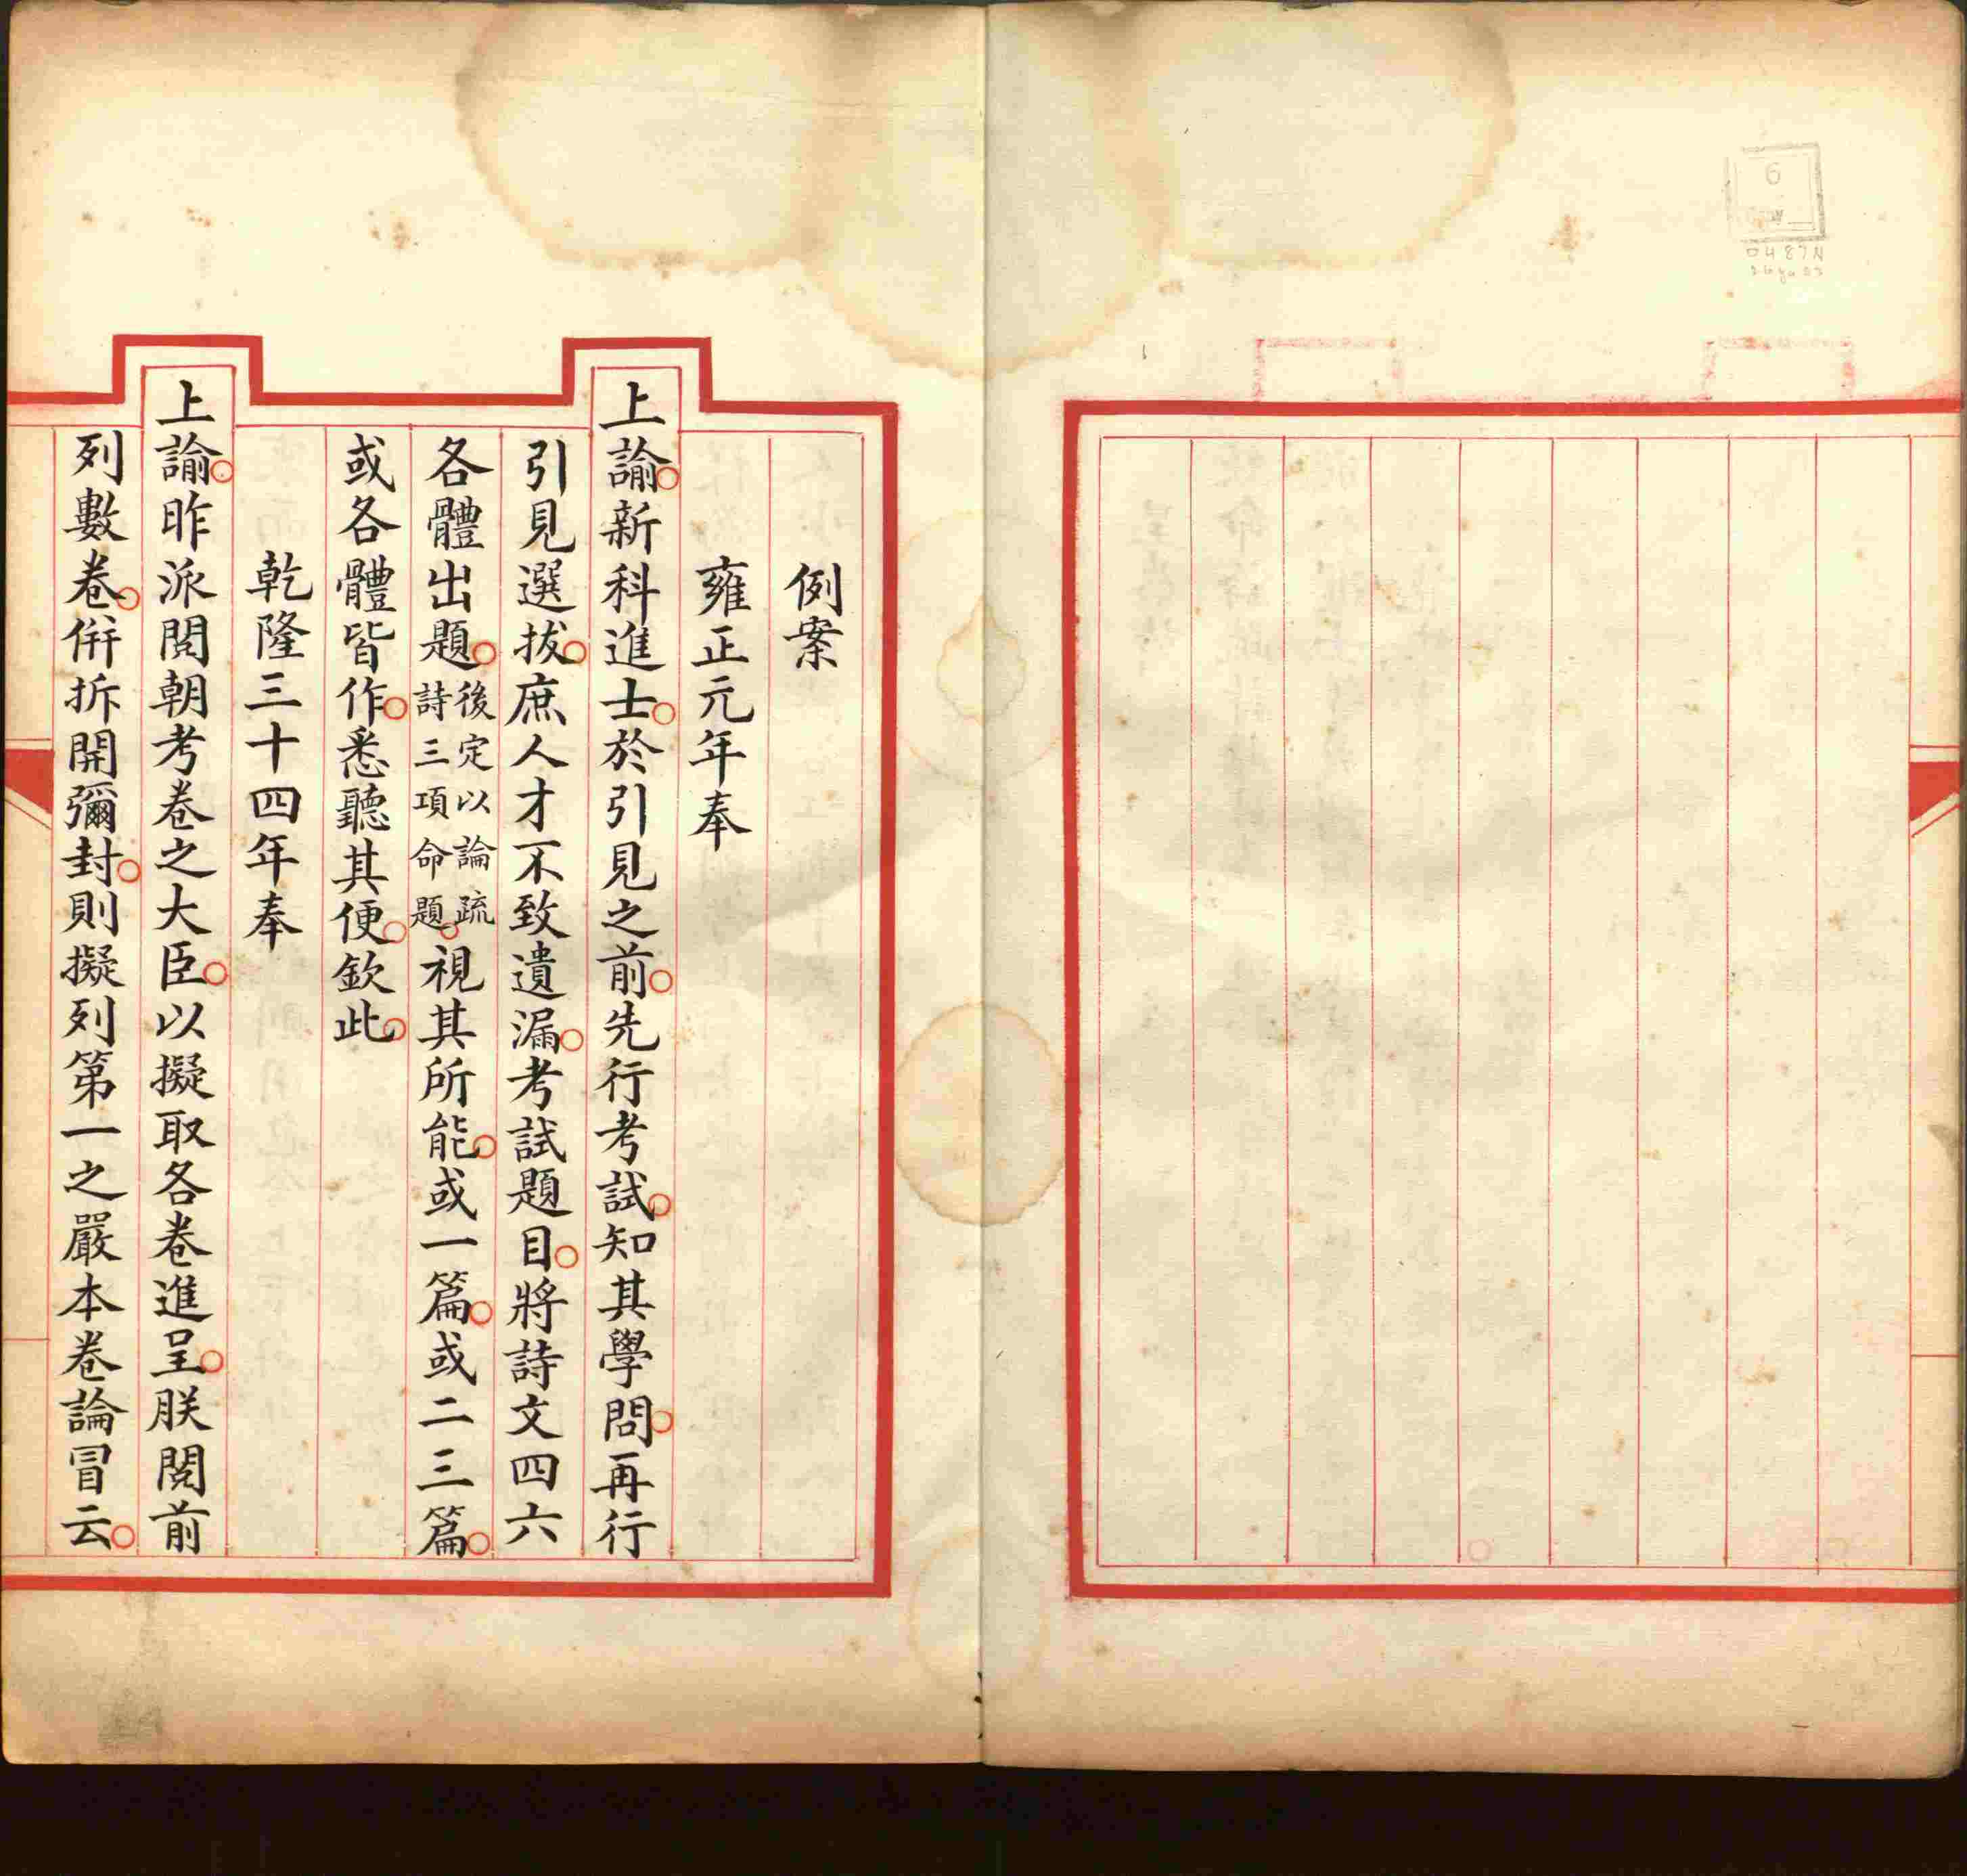 例案
雍正元年奉
上諭新科進士於引見之前先行考試知其學問再行
引見選拔庶人才不致遺漏考試題目將詩文四六
各體出題後定以論疏詩三項命題視其所能或一篇或二三篇
或各體皆作悉聽其便欽此
乾隆三十四年奉
上諭昨派閱朝考卷之大臣以擬取各卷進呈朕閱前
列數卷併拆開彌封則擬列第一之嚴本卷論冒云
6